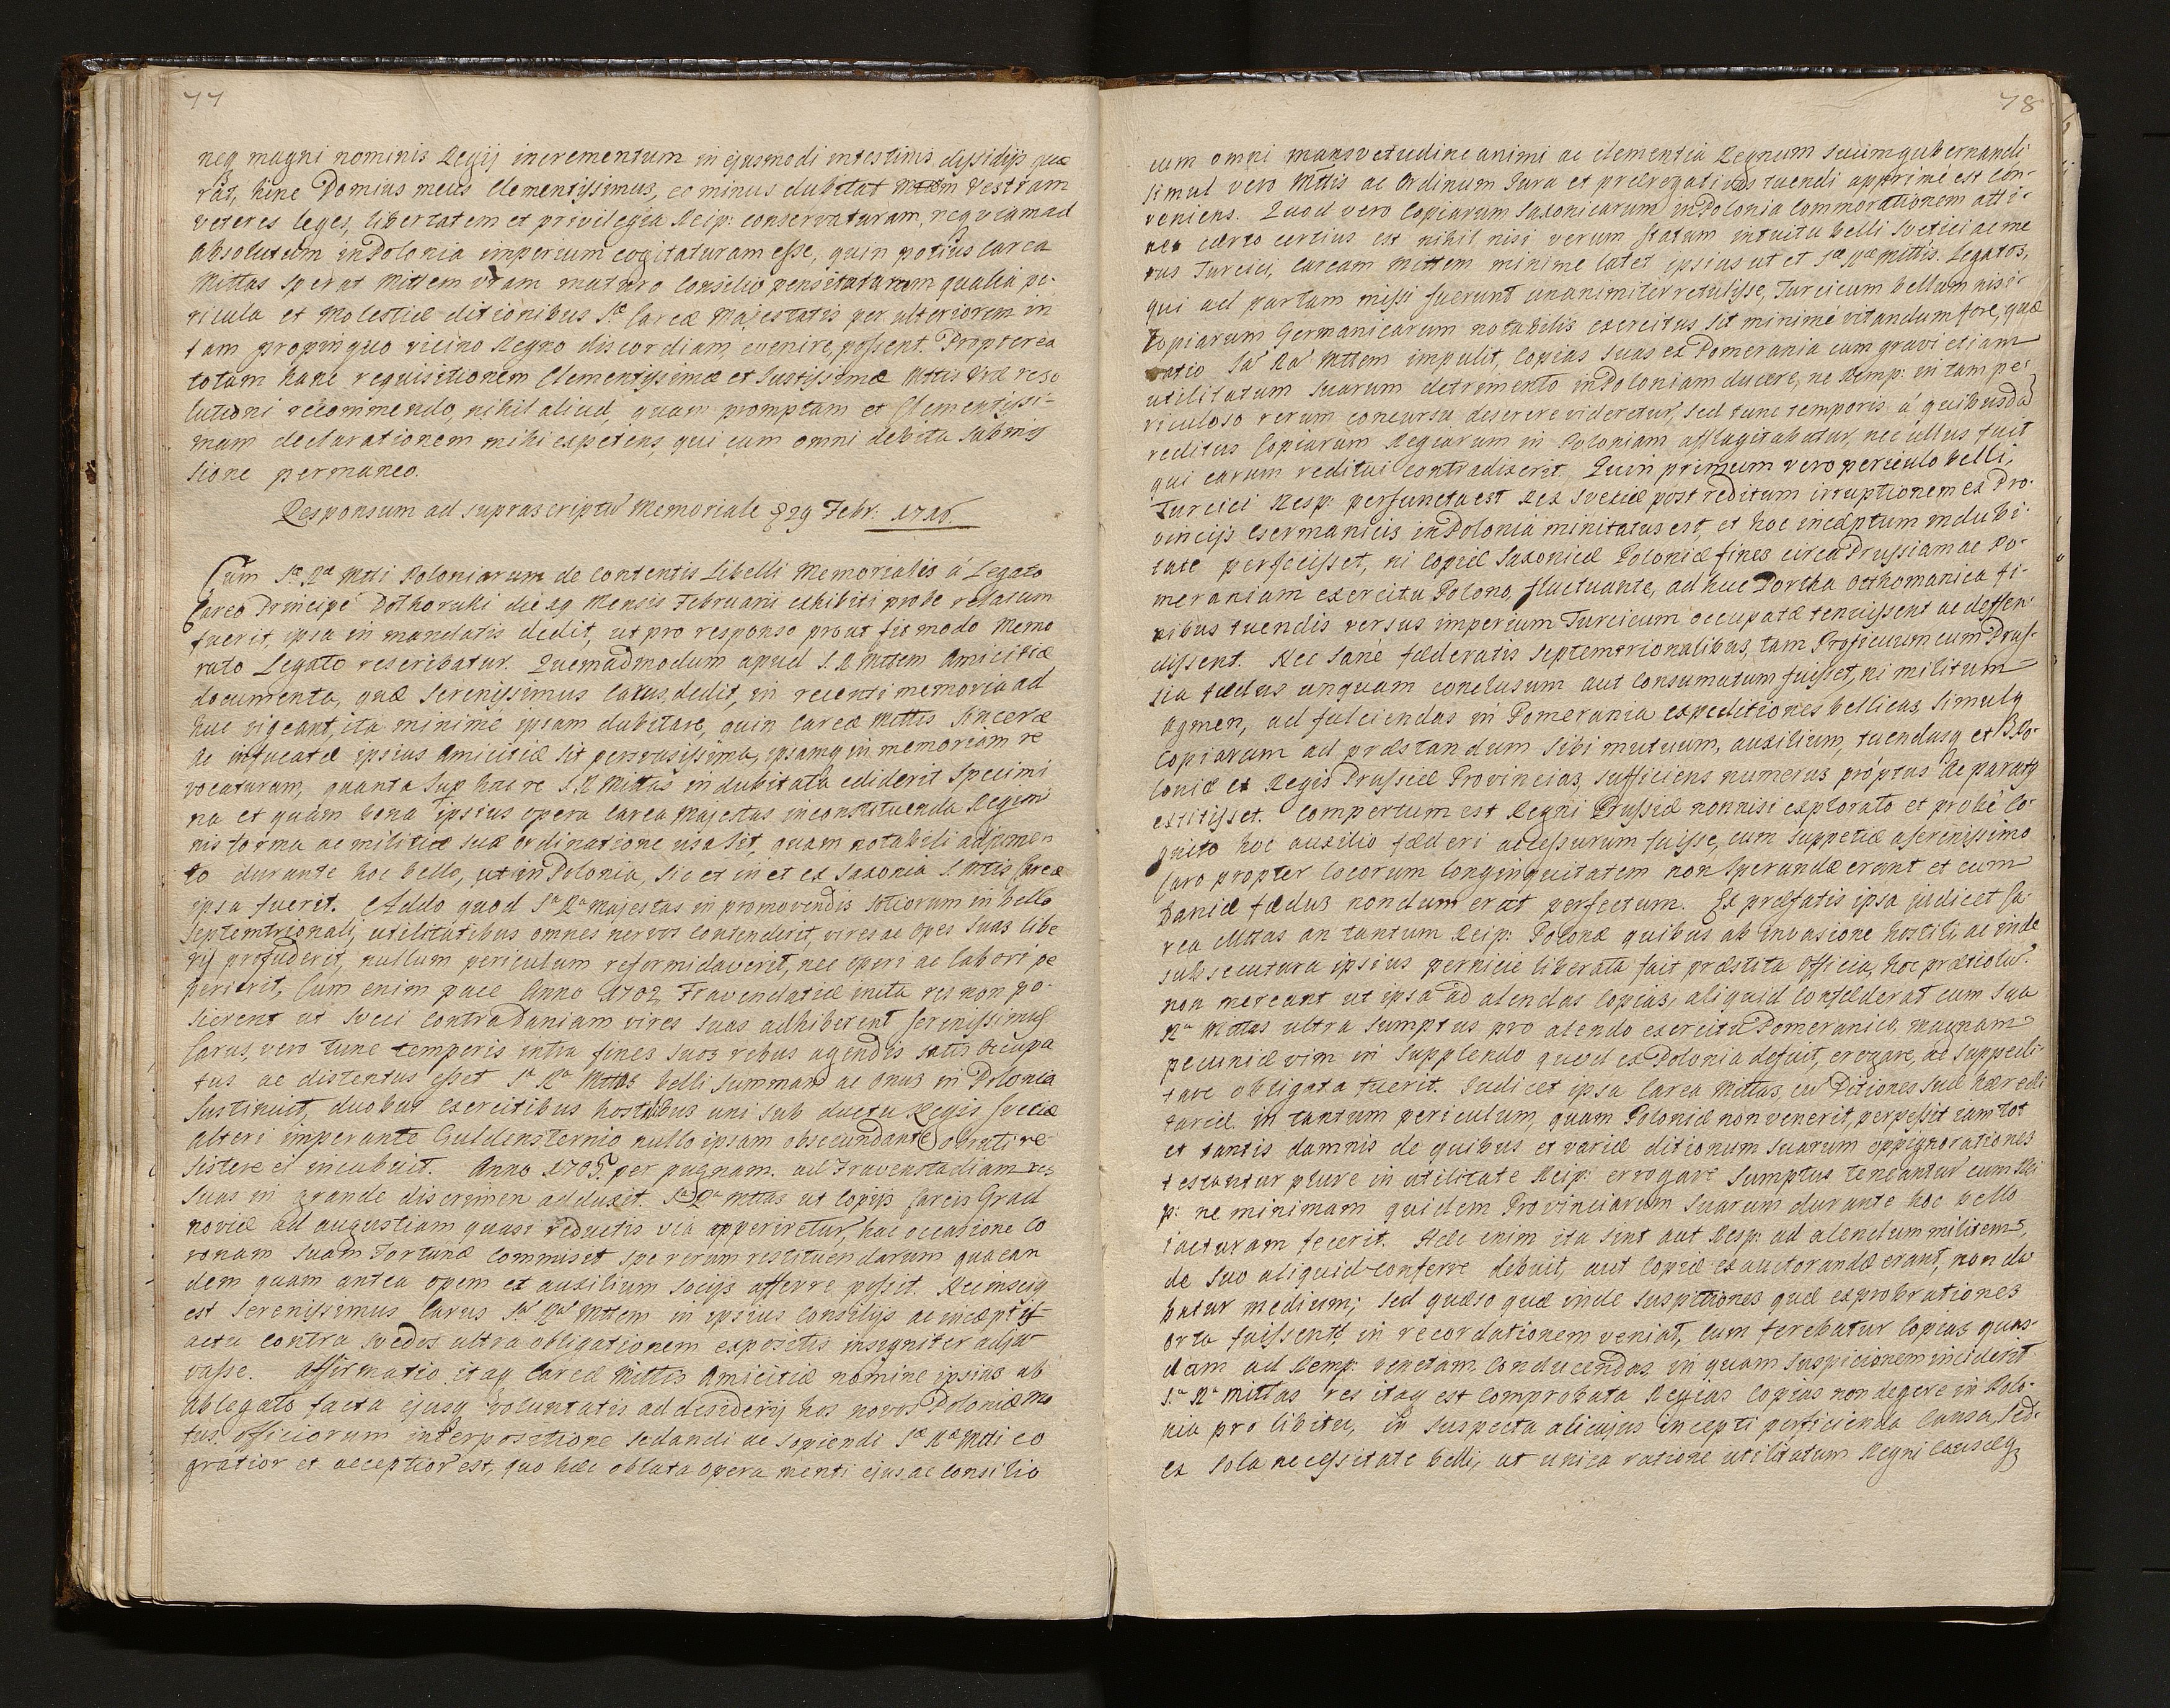 77
neq magni nominis Regij incrementum in ejusmodi intestinis dyssidijs quæ
rat, hinc Dominus meus Clementissimus, eo minus dubitat Mttem Vestram
veteres leges, libertatem et privilegia Reip: conservaturam, neq unquam ad
absolutum in Polonia imperium cogitaturam esse, quin potius Carea
Mittas sperat Mittem Vram maturo Consilio pensitaturam qualia pe-
ricula et Molestiæ ditionibus Sæ Careæ Majestatis per ulteriorem in
tam propinquo vicino Regno discordiam, evenire possent. Propterea
totam hanc requisitionem Clementissimæ et Justissimæ Mttis Vræ reso
lutioni recommendo, nihil aliud, quam promptam et Clementissi-
mam declarationem mihi expetens, qui cum omni debita submis
sione permaneo.
Responsum ad suprascriptū Memoriale 29 Febr. 1716.
Cum Sæ Ræ Mtti Poloniarum de contentis Libelli Memorialis á Legato
Careo Principe Dolhoruki die 29 Mensis Februarii exhibiti probe relatum
fuerit, ipsa in mandatis dedit, ut pro responso prout fit modo Memo
rato Legato rescribatur. Quemadmodum apud S. R Mttem Amicitiæ
documenta, quæ Serenissimus Carus, dedit, in recenti memoria ad
huc vigeant, ita minime ipsam dubitare, quin Careæ Mttis Sinceræ
ac infucatæ ipsius Amicitiæ sit persvasissima, ipsamq in memoriam re
vocaturam, quanta sup hac re S. R Mittas indubitata ediderit specimi
na et quàm bona ipsius opera Carea Majestas in constituenda Regimi
nis forma ac militiæ suæ ordinatione usa sit, quam notabili adjumen
to durante hoc bello, ut in Polonia, sic et in et ex Saxonia S. Mttis Careæ
ipsa fuerit. Addo quod Sa Ra Majestas in promovendis sociorum in bello
septemtrionali, utilitatibus omnes nervos contenderit, vires ac opes suas libe
rij profuderit, nullum periculum reformidaverit, nec operi ac labori pe
pererit, Cum enim pace Anno 1702 Travendatiæ inita res non po-
scerent ut Sveci contra Daniam vires suas adhiberent Serenissimus
Carus, vero tunc temporis intra fines suos rebus agendis satis occupa
tus ac distentus esset Sa Ra Mttas belli summam ac onus in Polonia
sustinuit, duobus exercitibus hostibus uni sub ductu Regis Sveciæ
alteri imperante Guldensternio nullo ipsam obsecundante obrati re
sistere ei incubuit. Anno 1705. per pugnam. ad Fravenstadiam res
suas in grande discrimen adduxit. Sa Ra Mttas ut Copijs Careis Grad
noviæ ad angustiam quasi reductis via apperiretur, hac occasione Co
ronam suam Fortunæ Commisit spe rerum restituendarum qua ean
dem quam antea opem et auxilium socijs afferre possit. Nec inscig
est Serenissimus Carus Sæ Ræ Mttem in ipsius consilijs ac incæptis
actu contra Svedos ultra obligationem expositis insigniter adju
vasse. Affirmatio itaq Careæ Mittis Amicitiæ nomine ipsius ab
Ablegato facta ejusq voluntatis ad desiderij hos novos Poloniæ Mo
tus. officiorum interpositione sedandi ac sopiendi Sæ Ræ Mtti eo
gratior et acceptior est, quo hæc oblata opera menti ejus ac consilio
78
cum omni mansvetudine animi ac clementia Regnum suum gubernandi
simul vero Mttis ac Ordinum Jura et prærogativas tuendi apprime est con-
veniens. Quod vero Copiarum Saxonicarum in Polonia Commorationem atti-
net certo certius est nihil nisi verum statum intuitu belli Svetici ac me
tus Turcici, Caream Mttem minime latet ipsius ut et Sæ Ræ Mittis. Legatos,
qui ad Portam missi fuerunt unanimiter retulisse, Turcicum bellum nisi
Copiarum Germanicarum notabilis exercitus sit minimé vitandum fore, quæ
ratio Sā Rā Mttem impulit, Copias suas ex Pomerania cum gravi etiam
utilitatum suarum detrimento in Poloniam ducere, ne Remp: in tam pe-
riculoso rerum concursu deserere videretur, sed tunc temporis á quibusdā
reditus Copiarum Regiarum in Poloniam afflagitabatur, nec ullus fuit
qui earum reditui contradixerit. Quin primum vero periculo belli
Turcici Resp: perfuncta est Rex Sveciæ post reditum irruptionem ex Pro-
vincijs Germanicis in Polonia minitatus est, et hoc incæptum indubi-
tate perfecisset, ni Copiæ Saxonicæ Poloniæ fines circa Prussiam ac Po-
meraniam exercitu Polono, fluctuante, adhuc Portha Otthomanica fi-
nibus tuendis versus imperium Turcicum occupatæ tenuissent ac deffen-
dissent. Nec sane fæderatis septemtrionalibus, tam Proficuum cum Prus-
sia fædus unquam conclusum aut Consumatum fuisset, ni militum
agmen, ad fulciendas in Pomerania expeditiones bellicas, simulq
Copiarum ad præstandum sibi mutuum, auxilium, tuendasq et Po-
loniæ et Regis Prussiæ Provincias, sufficiens numerus prōptus ac paratq
extitisset. Compertum est Regni Prussiæ nonnisi explorato et probé co-
gnito hoc auxilio fæderi accessurum fuisse, cum suppetiæ a Serenissimo
Caro propter locorum longinquitatem non sperandæ erant et cum
Daniæ fædus nondum erat perfectum. Ex præfatis ipsa judicet Ca-
rea Mttas an tantum Reip: Polonæ quibus ab invasione hostili, ac inde
subsecutura ipsius pernicie liberata fuit præstita officia, hoc prætiolū
non mereant ut ipsa ad alendas Copias, aliquid confæderat cum Sua
Ra Mittas ultra sumptus pro alendo exercitu Pomeranico, magnam
pecuniæ vim in supplendo quod ex Polonia defuit, erogare, ac suppedi-
tare obligata fuerit. Judicet ipsa Carea Mittas, an Ditiones suæ hæredi
tariæ in tantum periculum, quam Poloniæ non venerit, perpessit iam tot
et tantis damnis de quibus et variæ ditionum suarum oppignorationes
testantur plure in utilitate Reip: errogare sumptus teneantur cum Rei
p: ne minimam quidem Provinciarum suarum durante hoc bello
iacturam fecerit. Hæc enim ita sint aut Resp: ad alendum militem,
de suo aliquid conferre debuit, aut Copiæ exauctorandæ erant, non da
batur medium; sed quæso quæ inde suspitiones quæ exprobrationes
orta fuissent in recordationem veniat, cum ferebatur Copias quas-
dam ad Remp: Venetam, conducendas, in quam suspicionem inciderit
Sa Ra Mittas res itaq est comprobata Regias Copias non degere in Polo-
nia pro libitu, in suspecta alicujus incepti perficienda causa, sed
ex sola necessitate belli, ut unica ratione utilitatum Regni Causæq